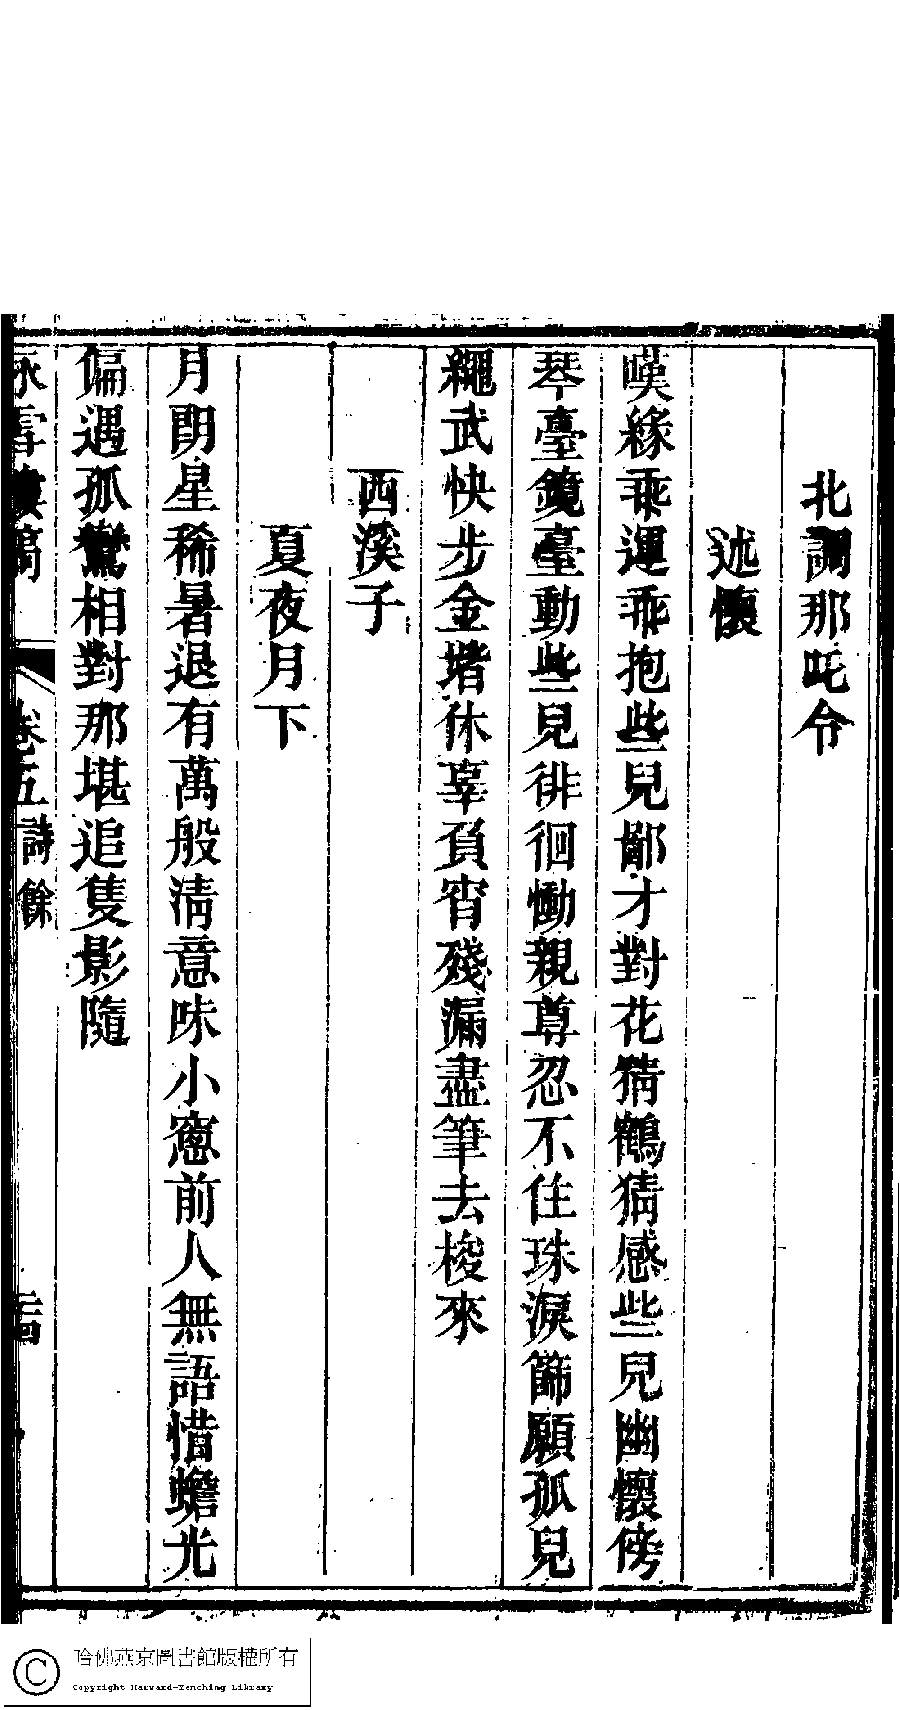 北調那吒令
述懷
嘆緣乖運乖抱些兒鄙才對花猜鶴猜感些兒幽懷傍
琴臺鏡臺動些兒徘徊慟親尊忍不住珠淚篩願孤兒
繩武快步金堦休辜負宵殘漏盡筆去梭來
西溪子
夏夜月下
月朗星稀暑退有萬般淸意味小窻前人無語惜蟾光
偏遇孤鸞相對那堪追隻影隨
咏雪樓稿 卷五 詩餘 二四
哈佛燕京圖書館版權所有
Copyright Harvard-Yenching Library